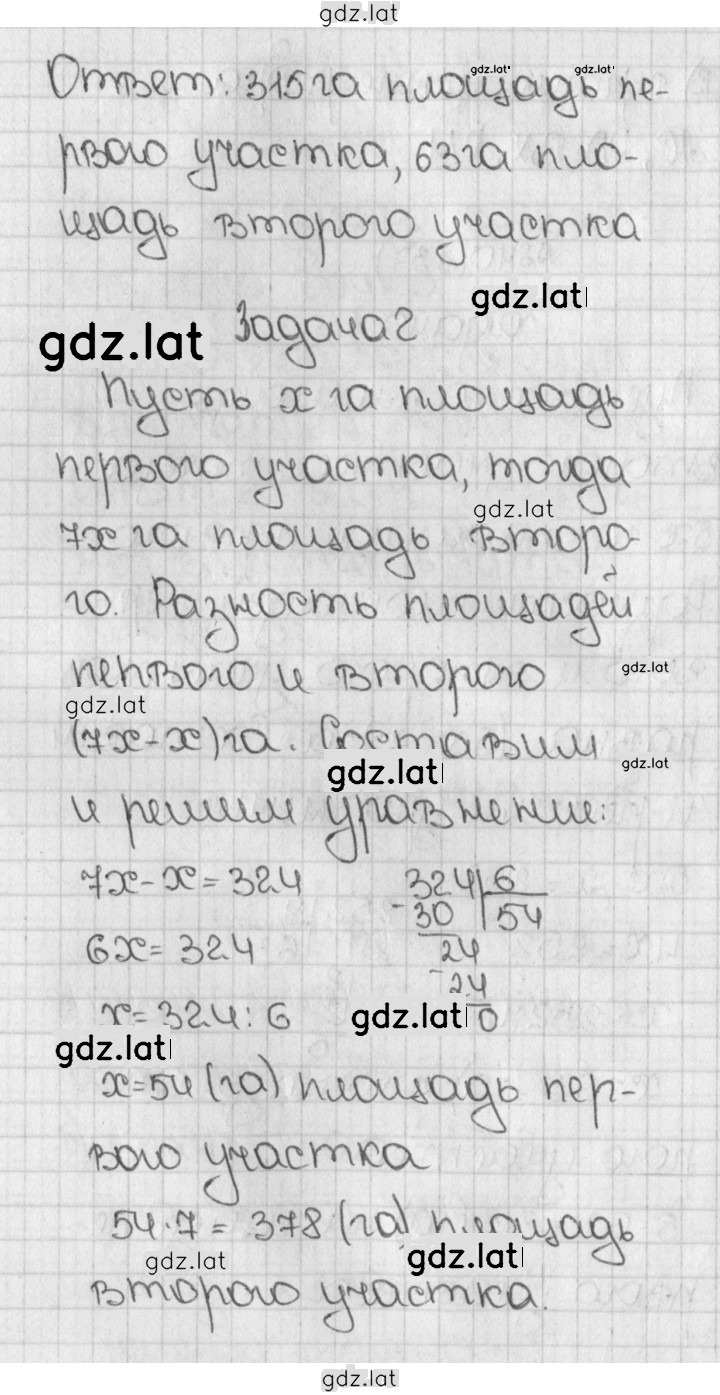 gdz.lat
gdz.lat gdz.lat
Ответ: 315 га площадь пе-
рвого участка, 63 га пло-
щадь второго участка
gdz.lat
gdz.lat Задача 2
Пусть x га площадь
первого участка, тогда
gdz.lat
7x га площадь второ-
го. Разность площадей
пепвого и второго gdz.lat
gdz.lat
(7x-x) га. Составим gdz.lat
gdz.lat
и решим уравнение:
7x-x=324 324 6
-30 54
6x=324 24
-24
x=324:6 gdz.lat 0
gdz.lat
x=54 (га) площадь пер-
вого участка
54·7=378 (га) площадь
gdz.lat gdz.lat
второго участка.
gdz.lat